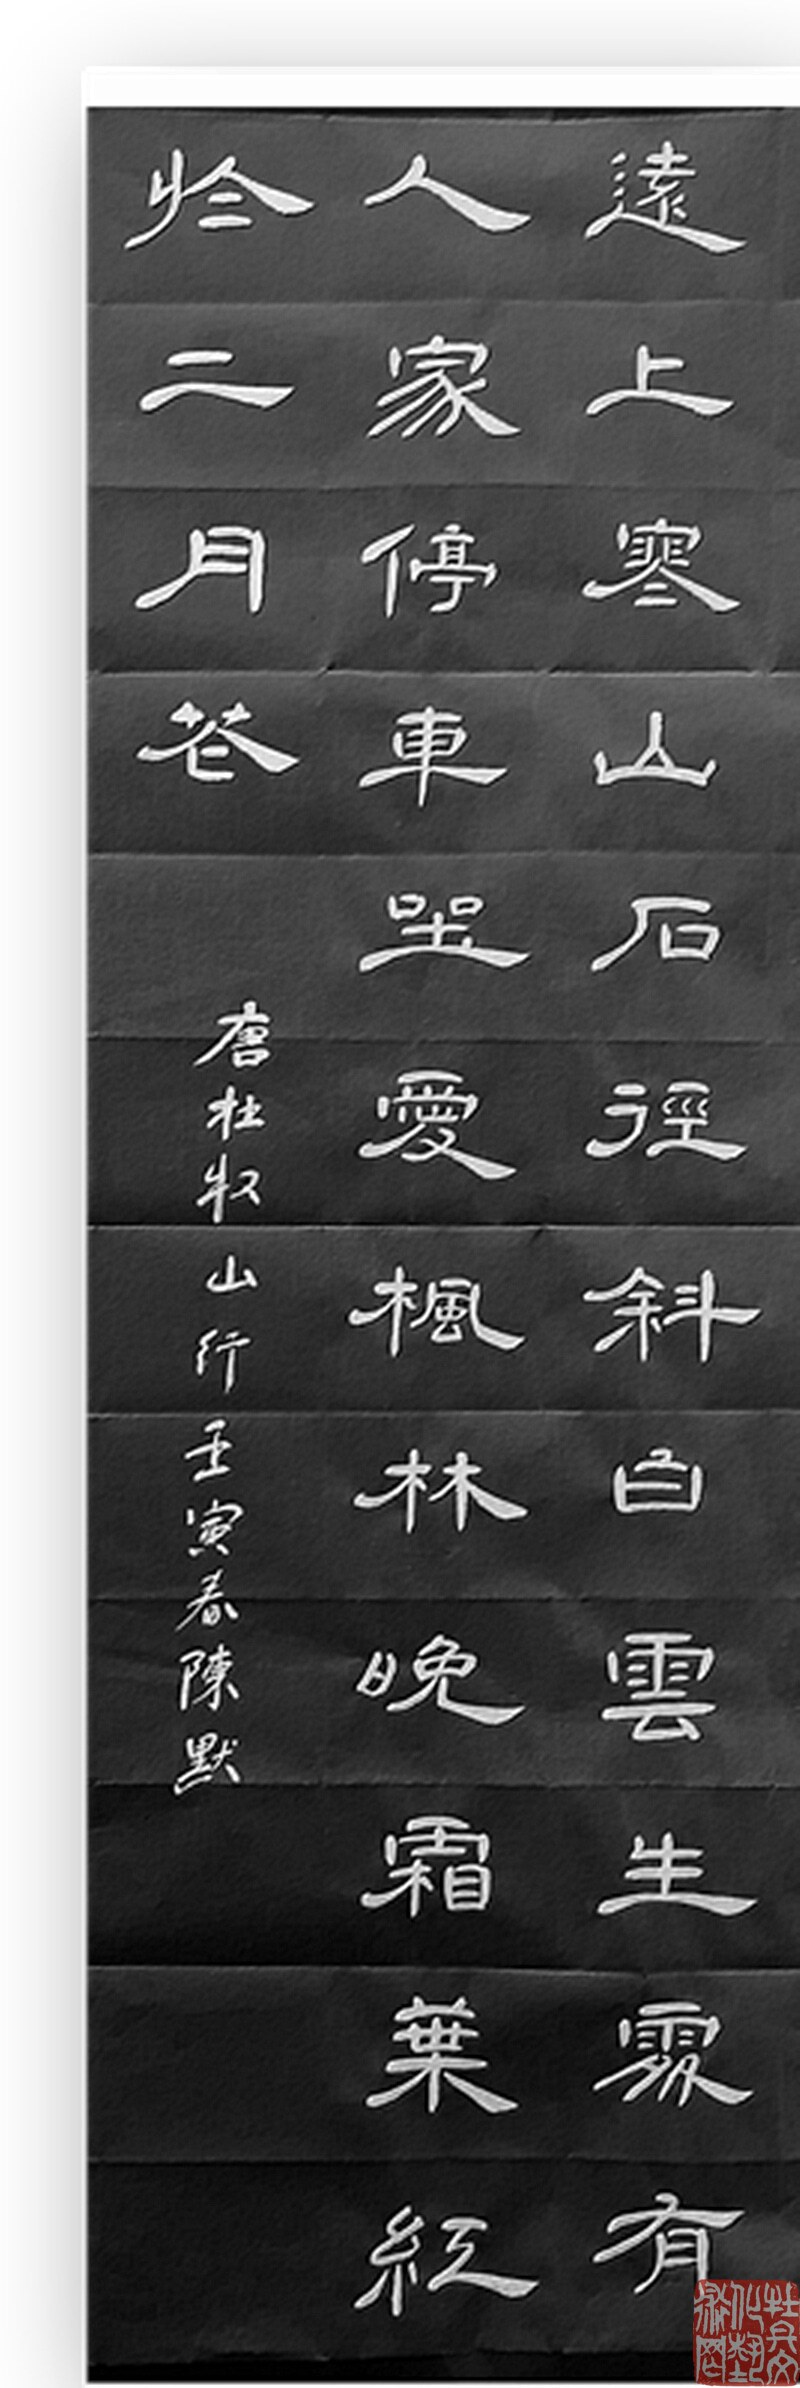 遠上寒山石徑斜白雲生處有
人家停車坐愛楓林晚霜葉紅
於二月花
唐杜牧山行壬寅春陳默